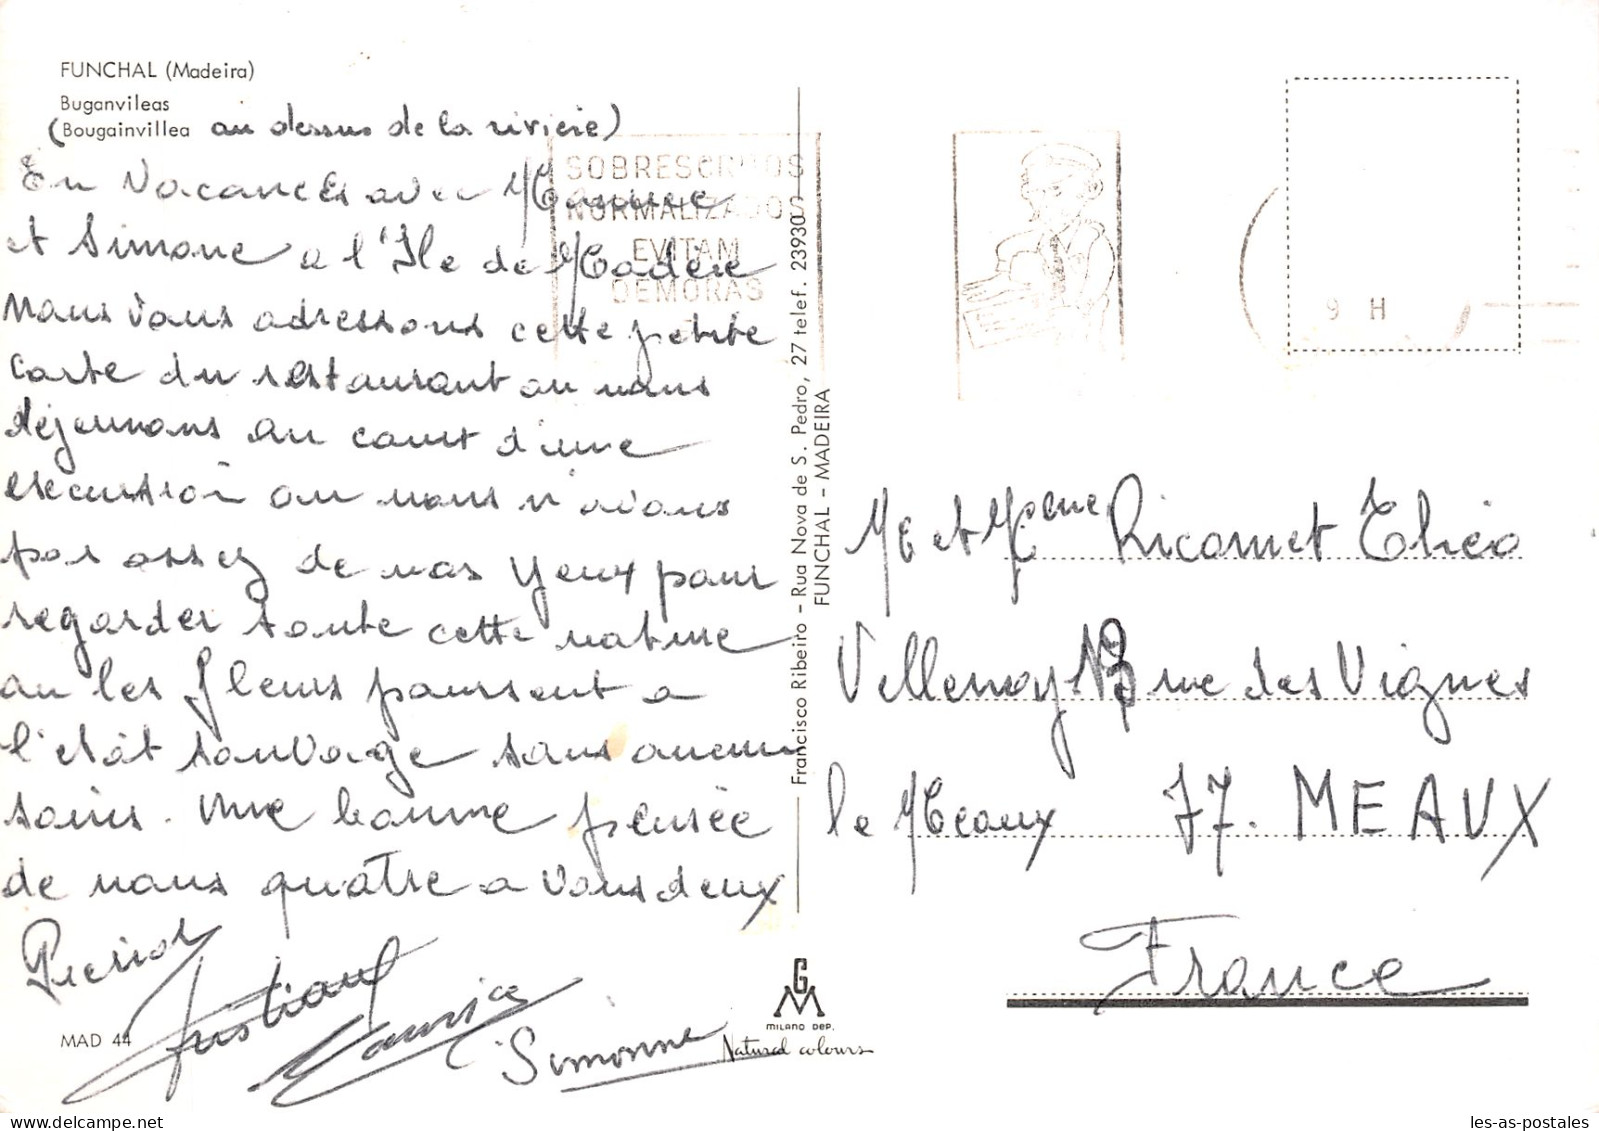 FUNCHAL (Madeira)
Buganvileas
(Bougainvillea au dessus de la rivière)
En Vacances avec Maurice
et Simone a l'Ile de Madère
Nous Vous adressons cette petite
carte du restaurant ou nous
déjeunons au court d'une
excursion ou nous n'avons
pas assez de nos yeux pour
regarder toute cette nature
ou les fleurs poussent a
l'etat sauvage sans aucun
soins. Une bonne pensée
de nous quatre a Vous deux
Maurice
Simonne
MAD 44
SOBRESCRITOS
NORMALIZADOS
EVITAM
DEMORAS
9 H
Francisco Ribeiro - Rua Nova de S. Pedro, 27 telef. 23930
FUNCHAL - MADEIRA
GM
MILANO DEP.
Natural colours
Mr et Mme Ricomet Théo
Villenoy rue des Vignes
le Meaux 77. MEAUX
France
les-as-postales